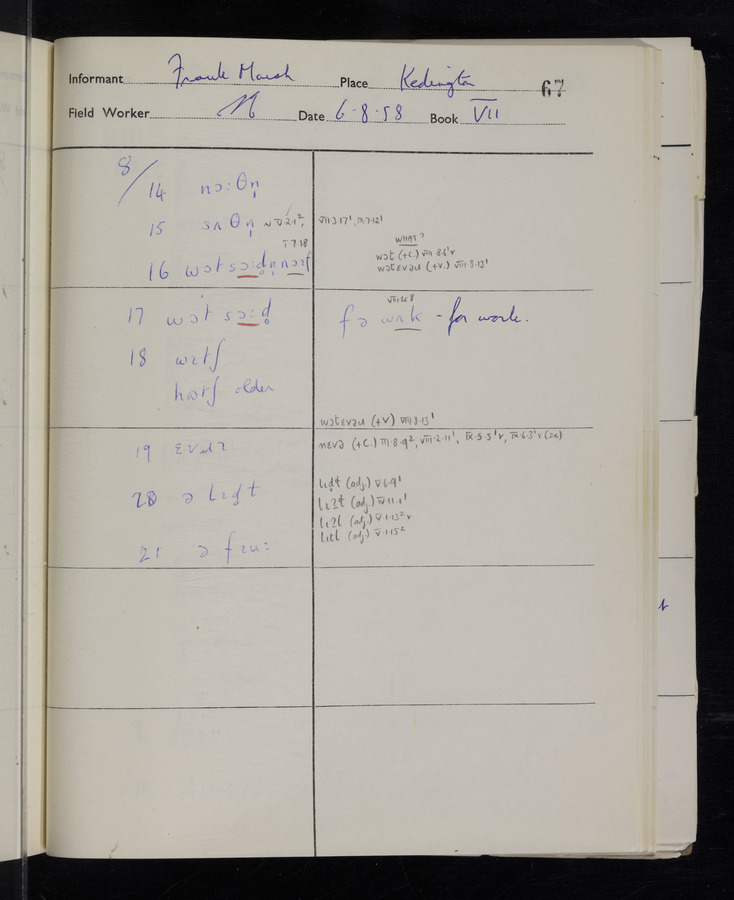 Informant Frank Marsh Place Kedington 67
Field Worker N Date 6-8-58 Book VII
8/14 nɔ:θn̩
15 sʌθn̩ ~ V.2.1², VII.3.17¹, IX.7.12¹
V.7.18
WHAT?
wɔt (+C.) VIII.8.6¹v
wɔtɛvəɹ (+V.) VIII.8.13¹
16 wɔt sɔ:d̥n̩
17 wɔt sɔ:d̥
VIII.4.8
fə wʌk - for work.
18 wɪtʃ
hɔtʃ older
wɔtɛvəɹ (+V) VIII.8.13¹
19
nɛvə (+C.) III.8.9², VIII.2.11¹, IX.5.5¹v, IX.6.3¹v (2x)
20 ə lɪd̥t
lɪd̥t (adj.) V.6.9¹
lɪʔt (adj.) VI.11.1¹
lɪʔl (adj.) V.1.13²v
lɪtl (adj.) V.1.15²
21 ə fɪu: